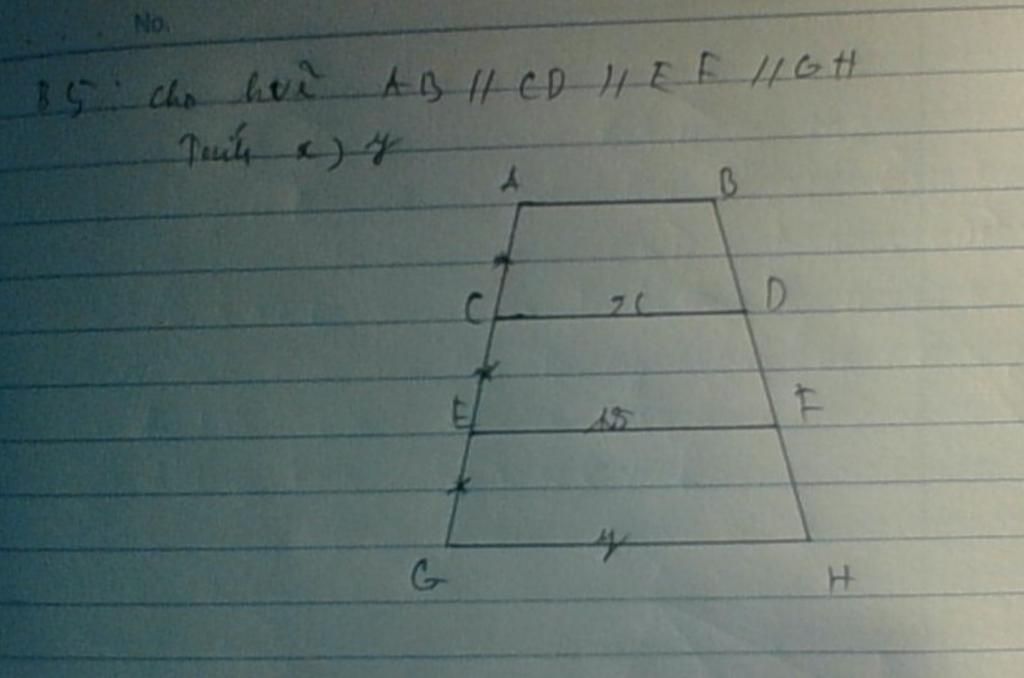 No.
B5: Cho hvẽ AB // CD // EF // GH
Tính x, y
A B
C x D
E 18 F
y
G H